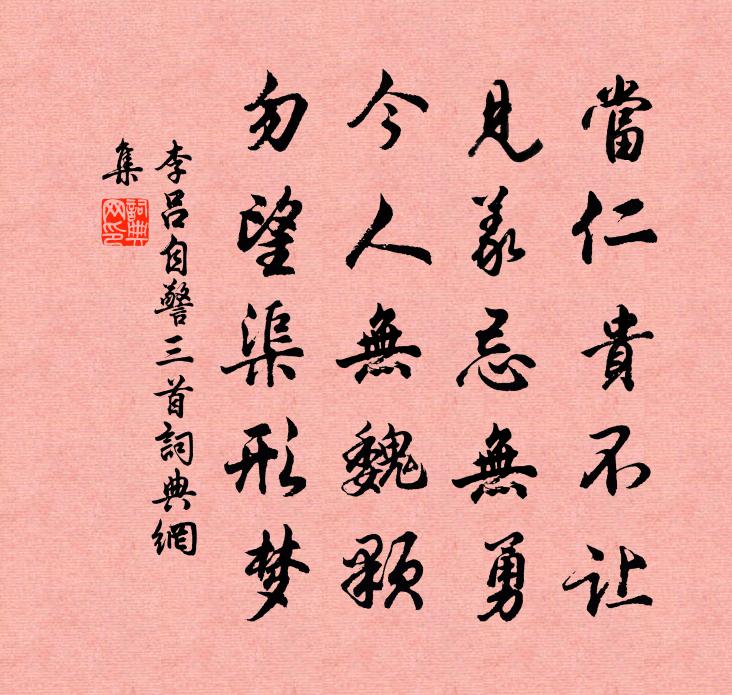 當仁貴不让
見義忌無勇
今人無魏顆
勿望渠形梦
李呂自警三首詞典網
集
詞典网印